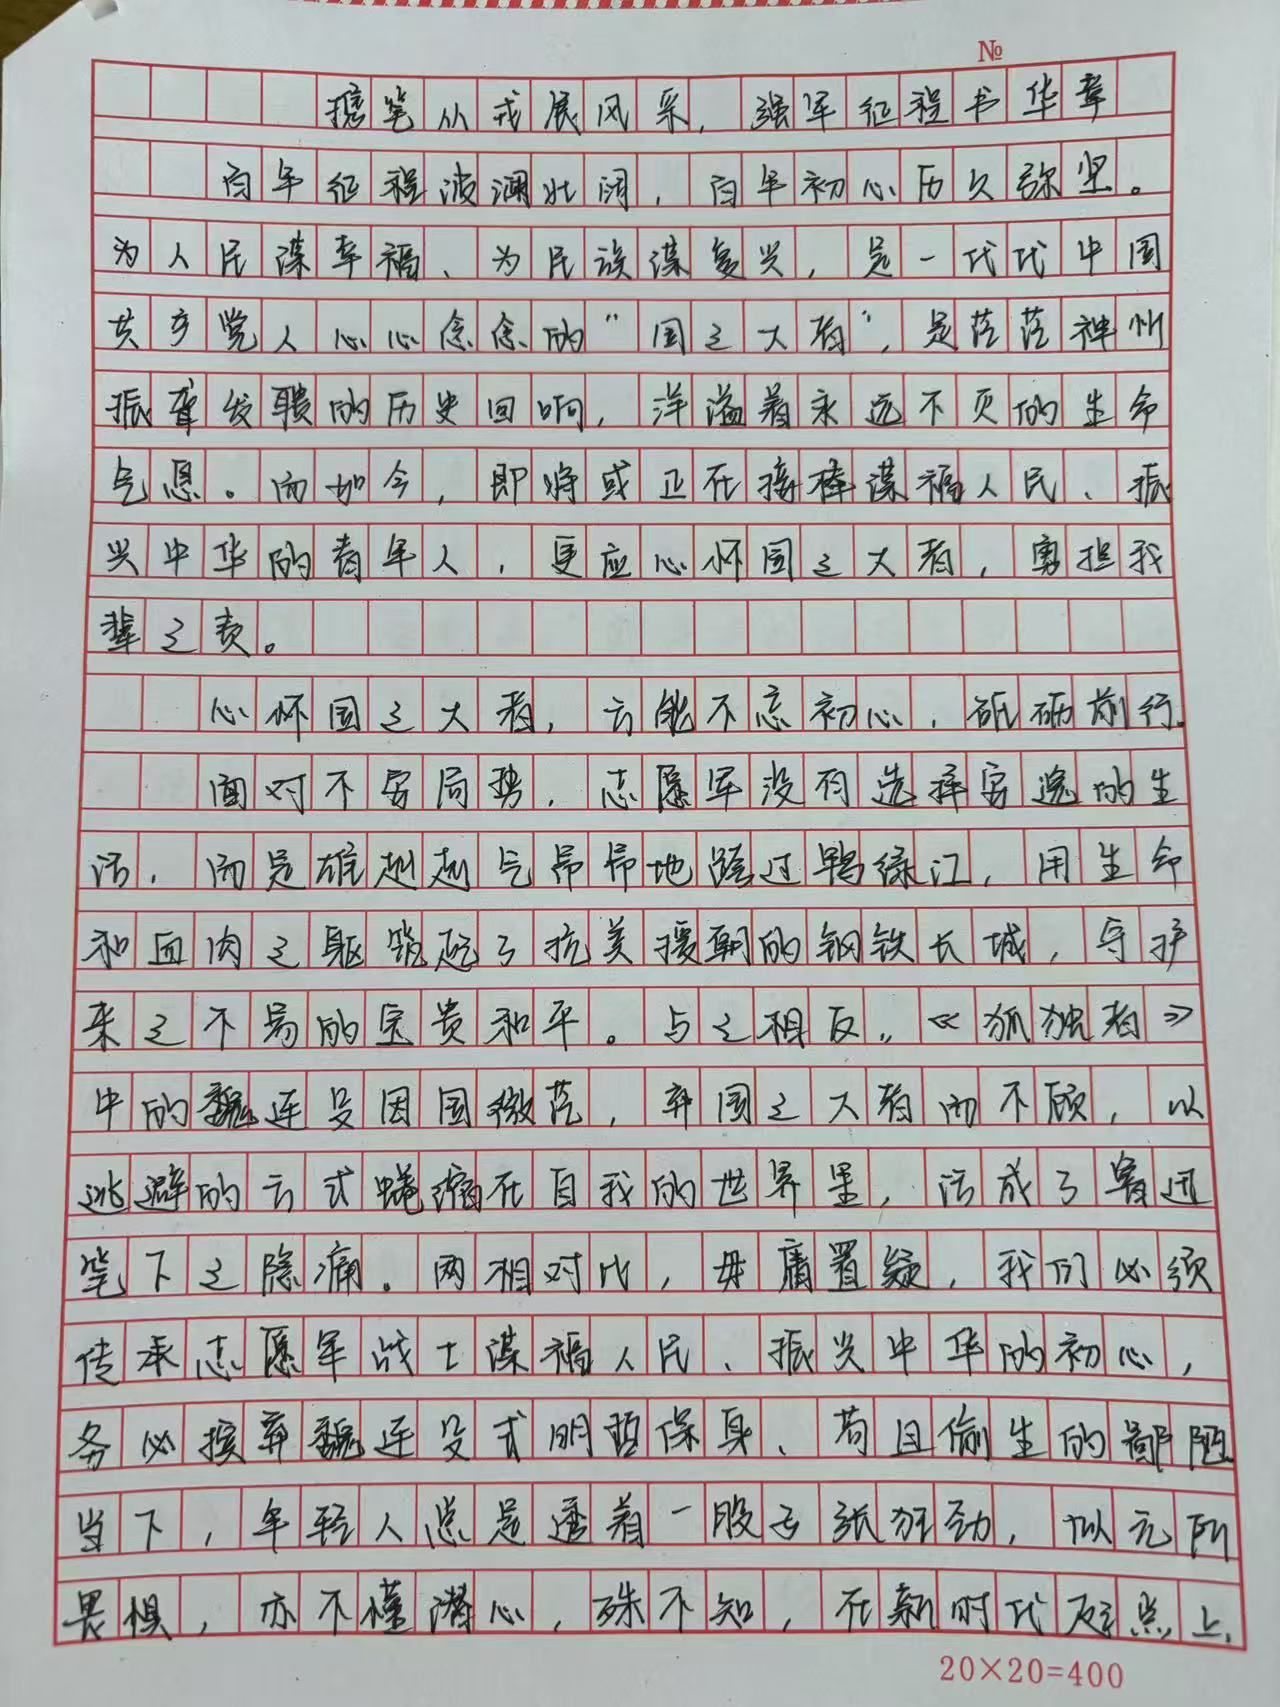 №
擔笔从戎展风采，强军征程书华章
百年征程波澜壮阔，百年初心历久弥坚。
为人民谋幸福、为民族谋复兴，是一代代中国
共产党人心心念念的“国之大者”，是茫茫神州
振聋发聩的历史回响，洋溢着永远不灭的生命
气息。而如今，即将或正在接棒谋福人民、振
兴中华的青年人，更应心怀国之大者，勇担我
辈之责。
心怀国之大者，方能不忘初心，砥砺前行。
面对不安局势，志愿军没有选择安逸的生
活，而是雄赳赳气昂昂地跨过鸭绿江，用生命
和血肉之躯筑起了抗美援朝的钢铁长城，守护
来之不易的宝贵和平。与之相反，《孤独者》
中的魏连殳因国微茫，弃国之大者而不顾，以
逃避的方式蜷缩在自我的世界里，活成了鲁迅
笔下之隐痛。两相对比，毋庸置疑，我们必须
传承志愿军战士谋福人民、振兴中华的初心，
务必摈弃魏连殳式明哲保身、苟且偷生的鄙陋
当下，年轻人总是透着一股子张狂劲，似无所
畏惧，亦不懂潜心，殊不知，在新时代起点上，
20×20=400